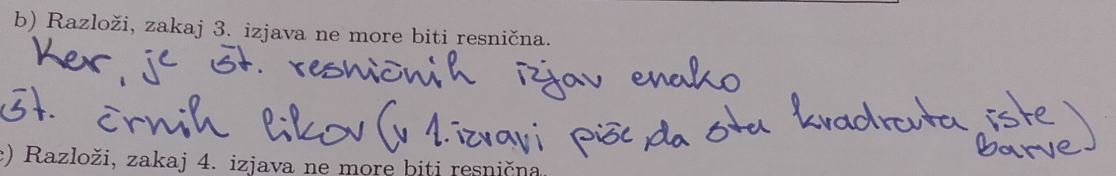 b) Razloži, zakaj 3. izjava ne more biti resnična.
Ker, je št. resničnih izjav enako
št. črnih likov (v 1. izravi piše, da sta kvadrata iste
barve.)
c) Razloži, zakaj 4. izjava ne more biti resnična.